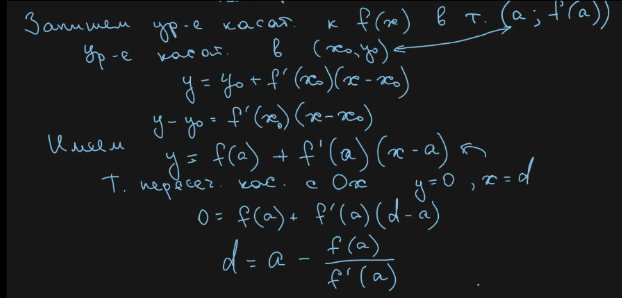 Запишем ур-е касат. к f(x) в т. (a; f(a))
Ур-е касат. в (x₀, y₀)
y = y₀ + f'(x₀)(x - x₀)
y - y₀ = f'(x₀)(x - x₀)
Имеем
y = f(a) + f'(a)(x - a)
Т. пересеч. кас. с Ox y = 0, x = d
0 = f(a) + f'(a)(d - a)
d = a - f(a)/f'(a)